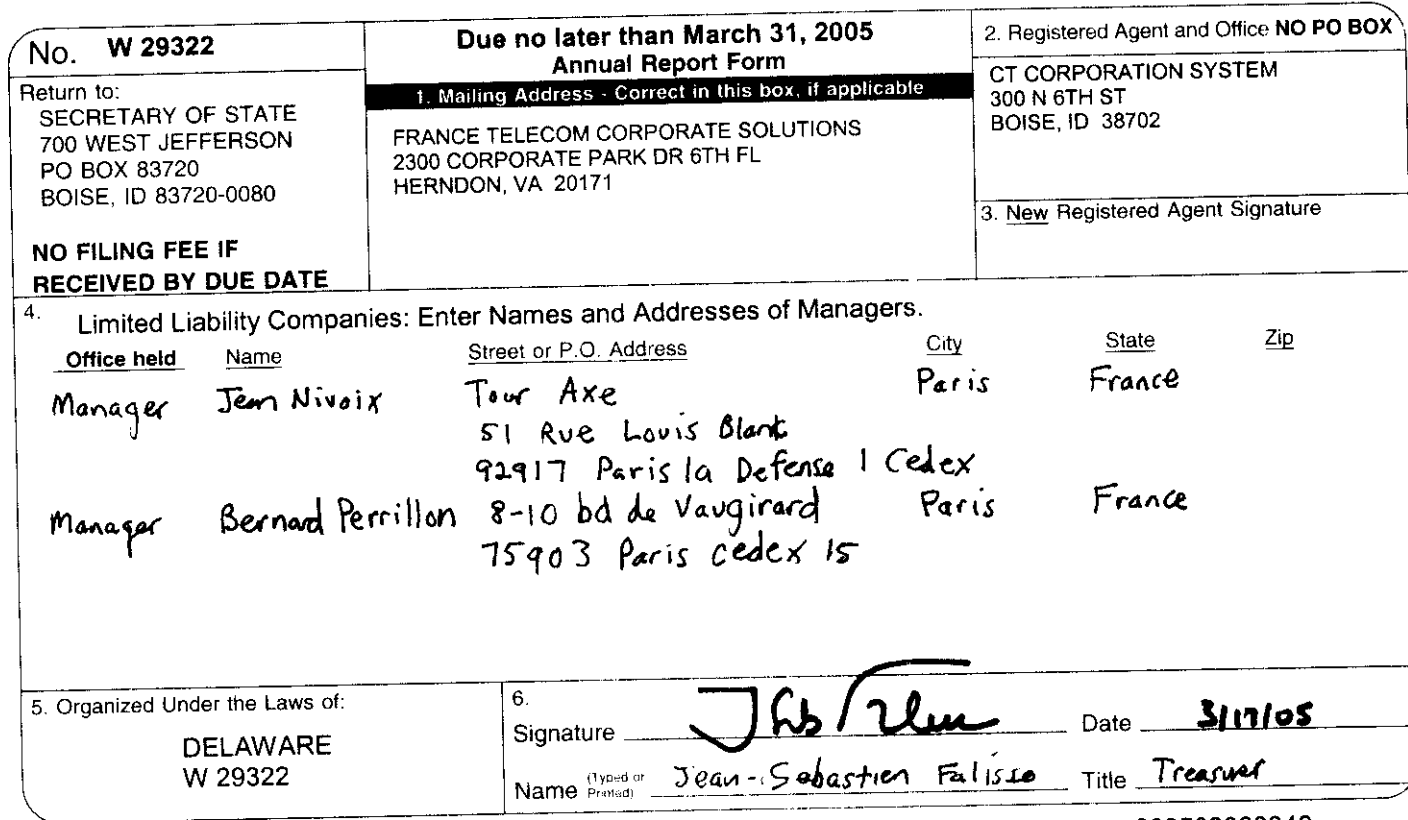 No. W 29322
Return to:
SECRETARY OF STATE
700 WEST JEFFERSON
PO BOX 83720
BOISE, ID 83720-0080
NO FILING FEE IF
RECEIVED BY DUE DATE
Due no later than March 31, 2005
Annual Report Form
1. Mailing Address - Correct in this box, if applicable
FRANCE TELECOM CORPORATE SOLUTIONS
2300 CORPORATE PARK DR 6TH FL
HERNDON, VA 20171
2. Registered Agent and Office NO PO BOX
CT CORPORATION SYSTEM
300 N 6TH ST
BOISE, ID 38702
3. New Registered Agent Signature
4. Limited Liability Companies: Enter Names and Addresses of Managers.
Office held Name Street or P.O. Address City State Zip
Manager Jean Nivoix Tour Axe Paris France
51 Rue Louis Blank
92917 Paris la Defense 1 Cedex
Manager Bernard Perrillon 8-10 bd de Vaugirard Paris France
75903 Paris cedex 15
5. Organized Under the Laws of:
DELAWARE
W 29322
6.
Signature Date 3/17/05
Name (Typed or Printed) Jean-Sebastien Falisse Title Treasurer